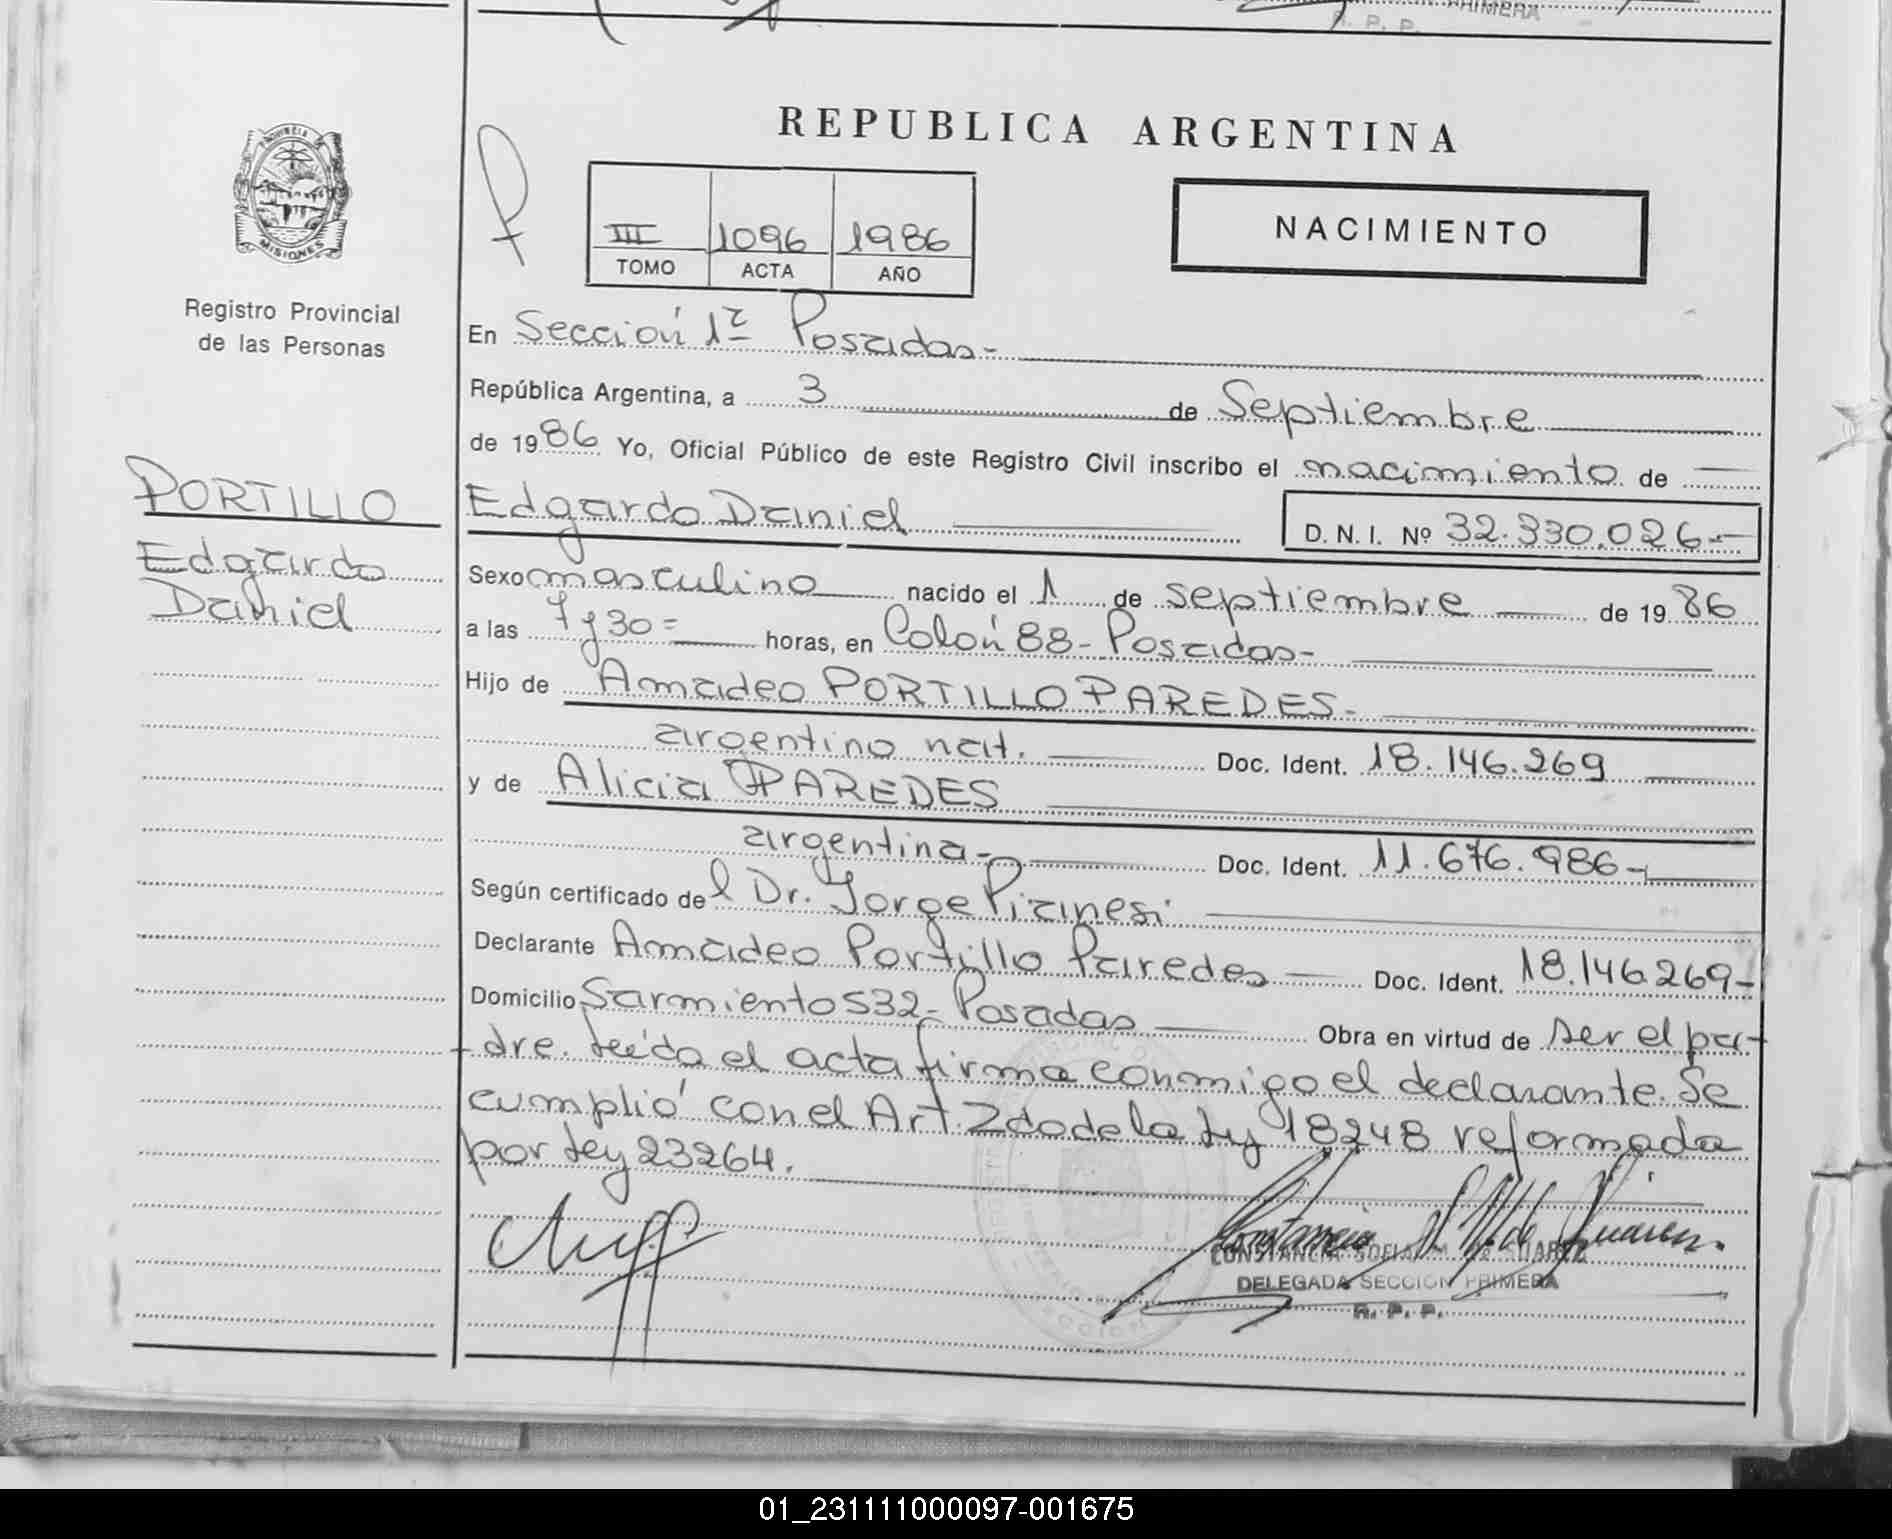 PRIMERA
R. P. P.
REPUBLICA ARGENTINA
PROVINCIA DE
MISIONES
Registro Provincial
de las Personas
III 1096 1986
TOMO ACTA AÑO
NACIMIENTO
En Sección 1ª Posadas-
República Argentina, a 3 de Septiembre
de 1986 Yo, Oficial Público de este Registro Civil inscribo el nacimiento de
PORTILLO
Edgardo
Daniel
Edgardo Daniel D.N.I. Nº 32.330.026-
Sexo masculino nacido el 1 de septiembre de 1986
a las 7 y 30= horas, en Colón 88- Posadas-
Hijo de Amadeo PORTILLO PAREDES-
argentino nat. Doc. Ident. 18.146.269
y de Alicia PAREDES
argentina- Doc. Ident. 11.676.986-
Según certificado del Dr. Jorge Piranesi
Declarante Amadeo Portillo Paredes Doc. Ident. 18.146.269-
Domicilio Sarmiento 532- Posadas Obra en virtud de ser el pa-
dre. Leída el acta firma conmigo el declarante. Se
cumplió con el Art. 2do de la Ley 18248 reformada
por Ley 23264.
CONSTANCIA SUAREZ
DELEGADA SECCION PRIMERA
R. P. P.
01_231111000097-001675